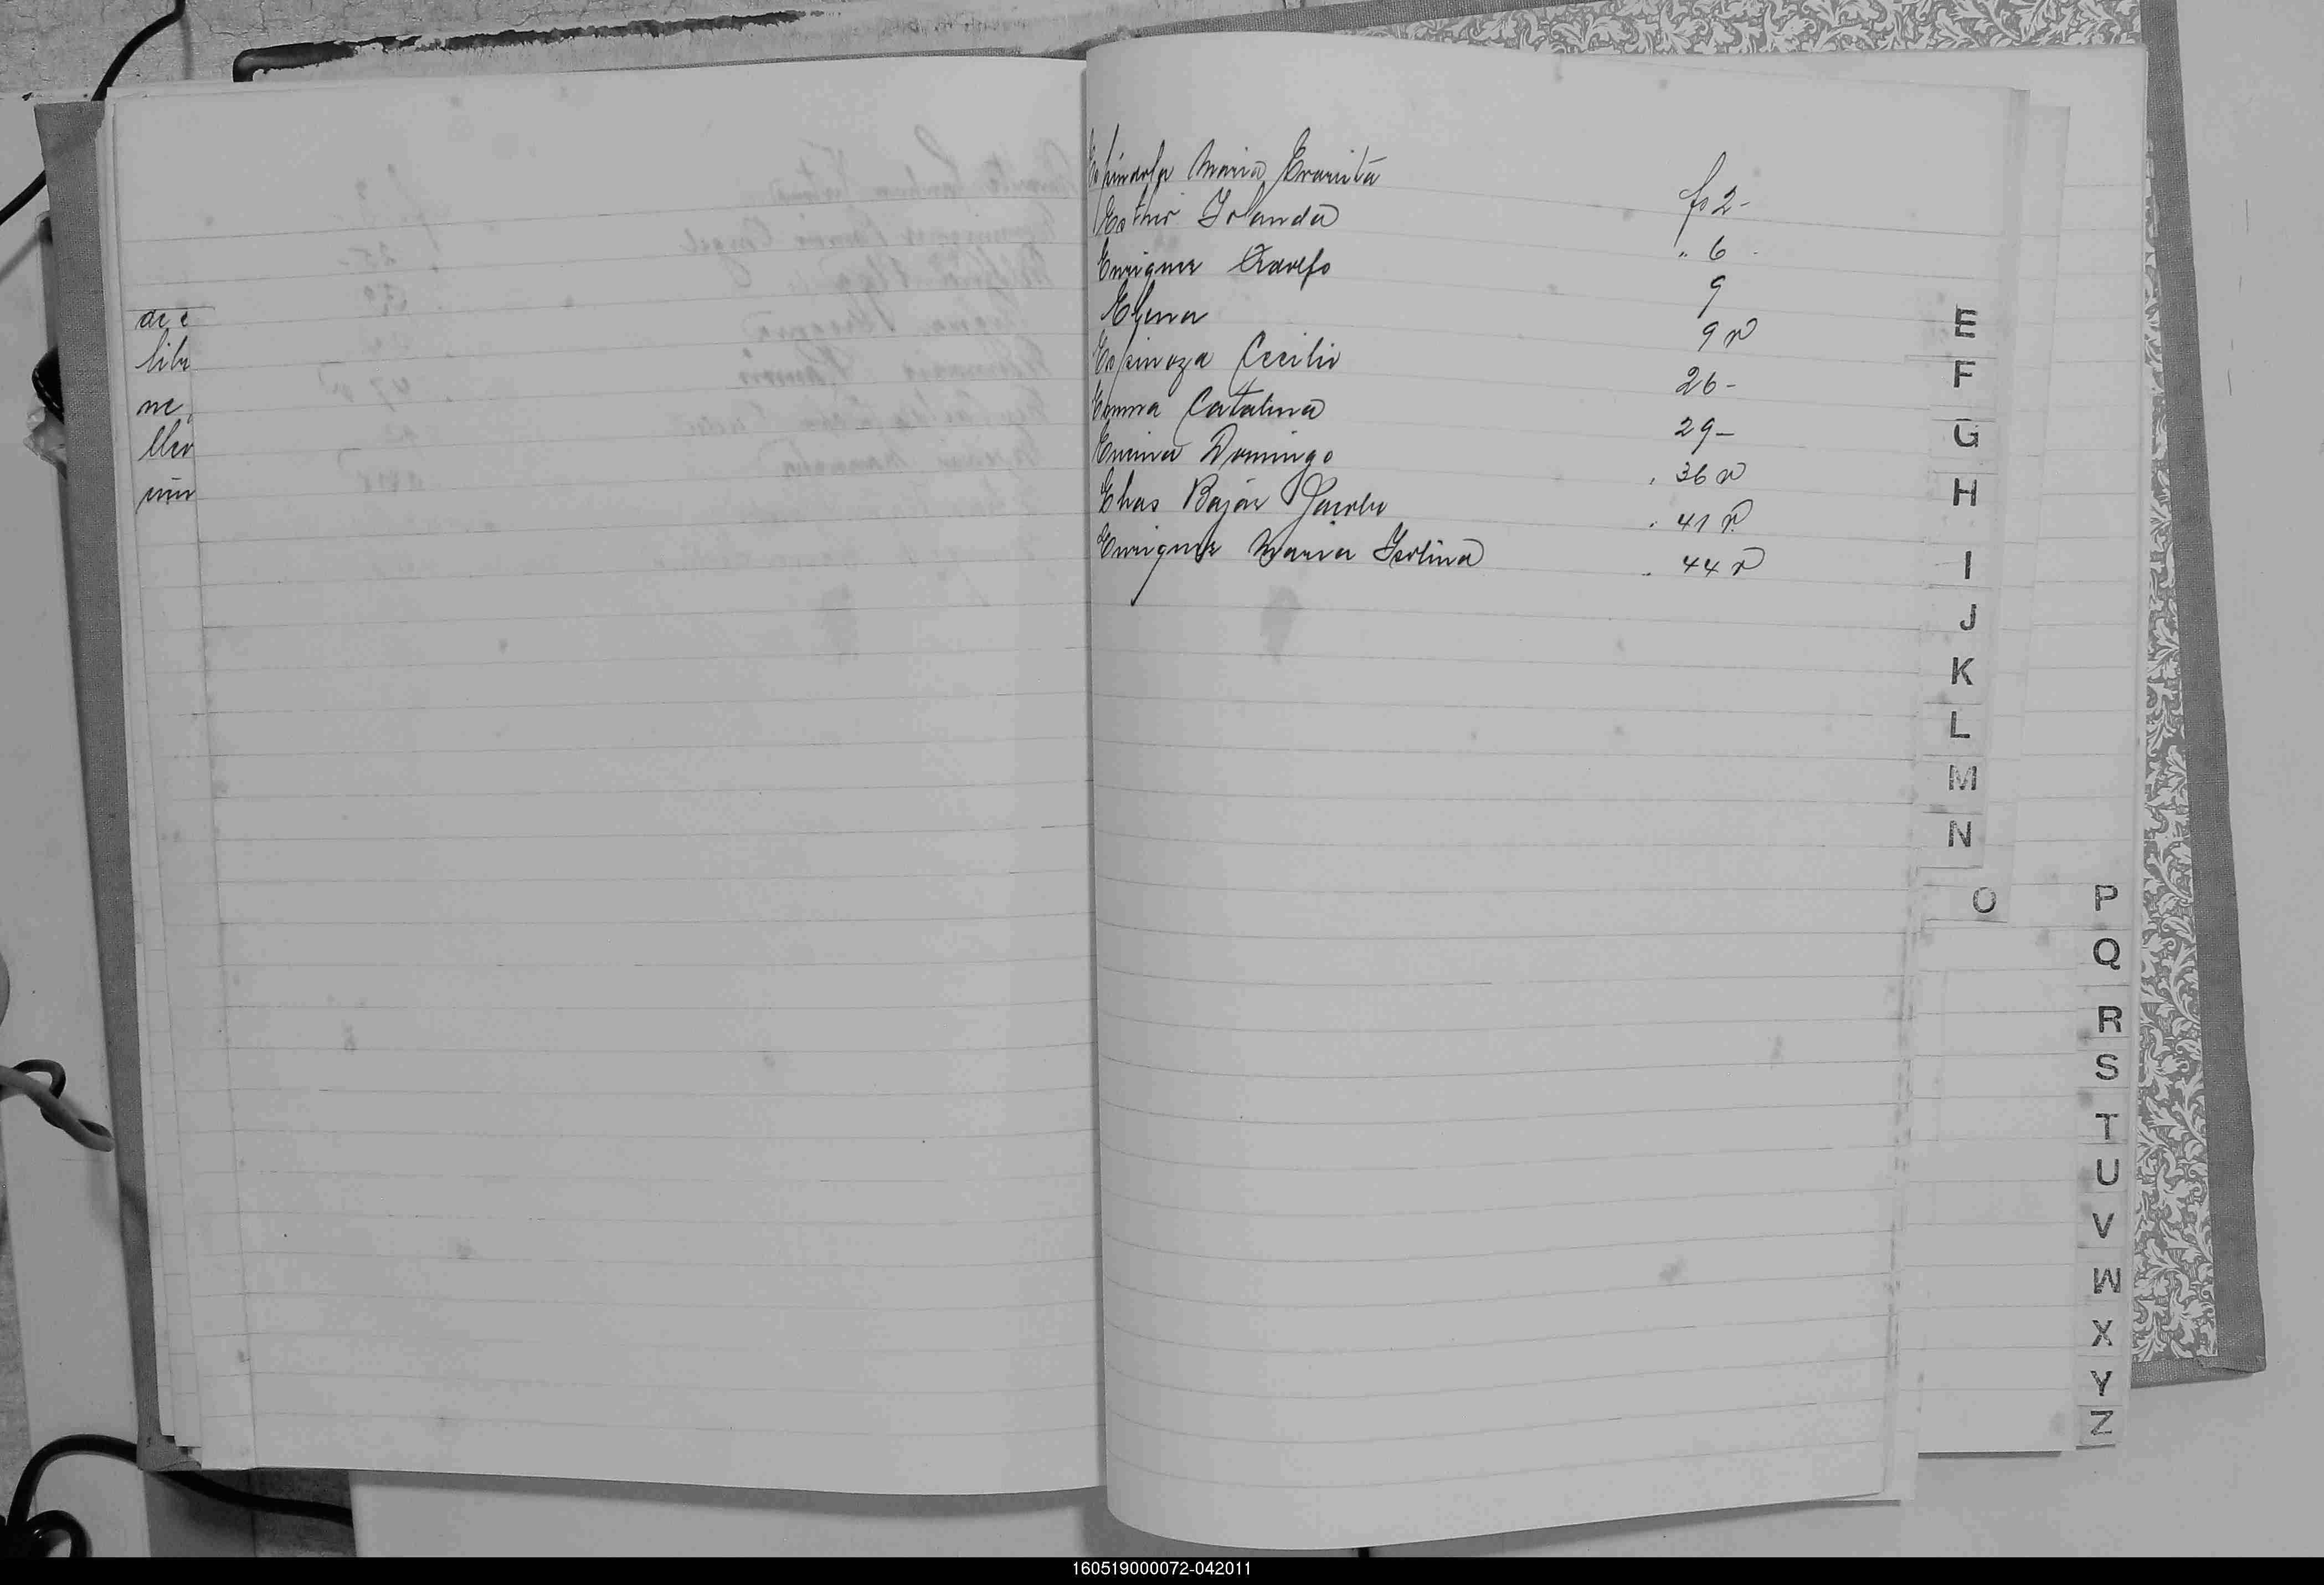 de e
libr
ne
llev
Espindola Maria Evarista fs 2-
Esther Yolanda " 6
Enrique Adolfo 9
Elena 9 v
Espinoza Cecilio 26-
Emma Catalina 29-
Encina Domingo 36 v
Elias Baján Jacobo 41 v
Enrique Maria Isolina 44 v
E
F
G
H
I
J
K
L
M
N
O
P
Q
R
S
T
U
V
W
X
Y
Z
160519000072-042011